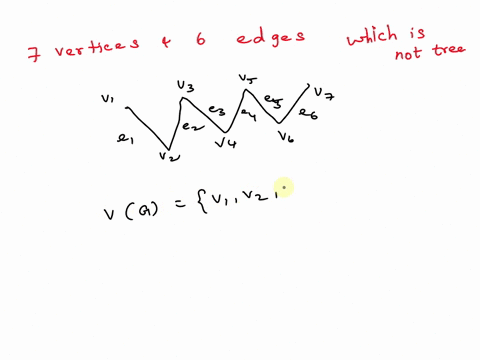 7 vertices & 6 edges which is
not tree
v1 v3 v5 v7
e1 e2 e3 e4 e5 e6
v2 v4 v6
V(G) = {v1, v2,